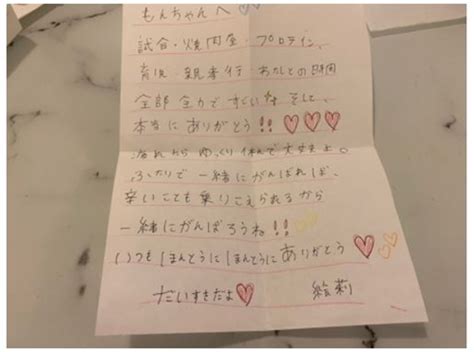 もんちゃんへ
試合・焼肉屋・プロテイン、
育児・親孝行 わたしとの時間
全部全力ですごいな そして、
本当にありがとう!!
ゆっくり休んで大丈夫よ。
ふたりで一緒にがんばれば、
辛いことも乗りこえられるから
一緒にがんばろうね!!
いつもほんとうにほんとうにありがとう
だいすきだよ 絵莉